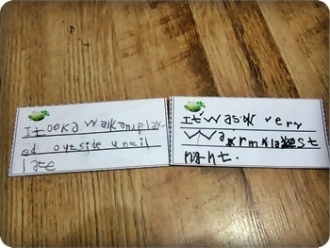 I took a walk and play
ed outside until
late
It was a very
warm
night.